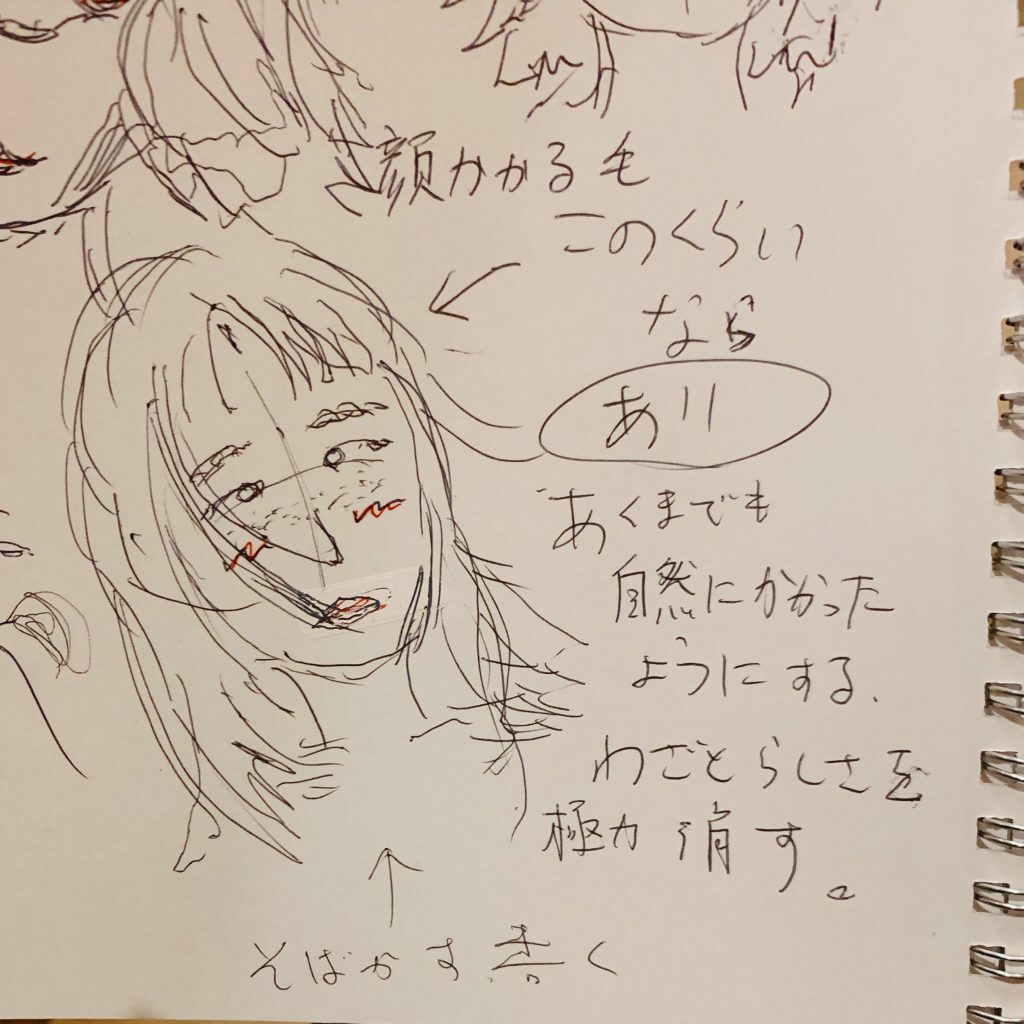 顔かかる毛
このくらい
なら
あり
あくまでも
自然にかかった
ようにする、
わざとらしさを
極力消す。
そばかす書く